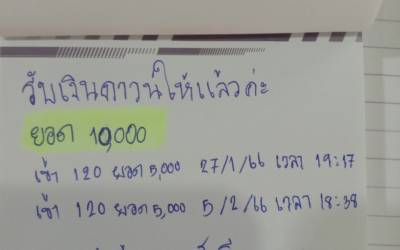 รับเงินดาวน์ให้แล้วค่ะ
ยอด 10,000
เข้า 120 ยอด 5,000 27/1/66 เวลา 19:17
เข้า 120 ยอด 5,000 5/2/66 เวลา 18:38